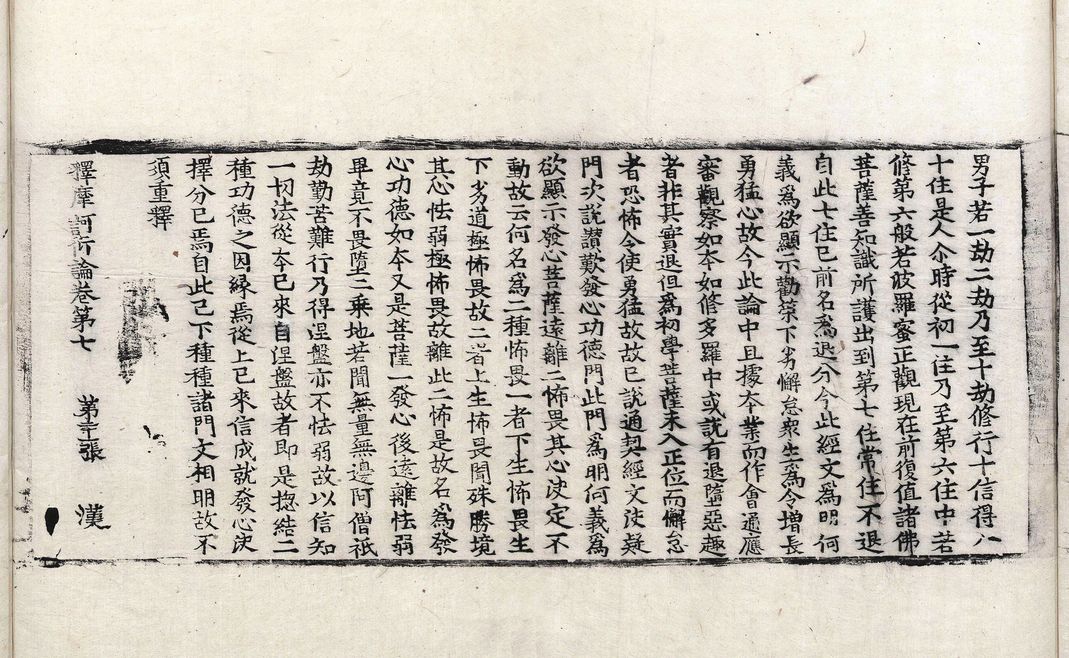 男子若一劫二劫乃至十劫修行十信得入
十住是人尒時從初一住乃至第六住中若
修第六般若波羅蜜正觀現在前復值諸佛
菩薩善知識所護出到第七住常住不退
自此七住已前名爲退分今此經文爲明何
義爲欲顯示勸策下劣懈怠衆生爲令增長
勇猛心故今此論中且據夲業而作會通應
審觀察如夲如修多羅中或說有退墮惡趣
者非其實退但爲初學菩薩未入正位而懈怠
者恐怖令使勇猛故故已說通契經文决疑
門次說讃歎發心功德門此門爲明何義爲
欲顯示發心菩薩遠離二怖畏其心决定不
動故云何名爲二種怖畏一者下生怖畏生
下劣道極怖畏故二者上生怖畏聞殊勝境
其心怯弱極怖畏故離此二怖是故名爲發
心功德如夲又是菩薩一發心後遠離怯弱
畢竟不畏墮二乘地若聞無量無邊阿僧祇
劫勤苦難行乃得涅盤亦不怯弱故以信知
一切法從夲已來自涅盤故者即是揔結二
種功德之因緣焉從上已來信成就發心决
擇分已焉自此已下種種諸門文相明故不
須重釋
釋摩訶衍論卷第七 第 張 漢